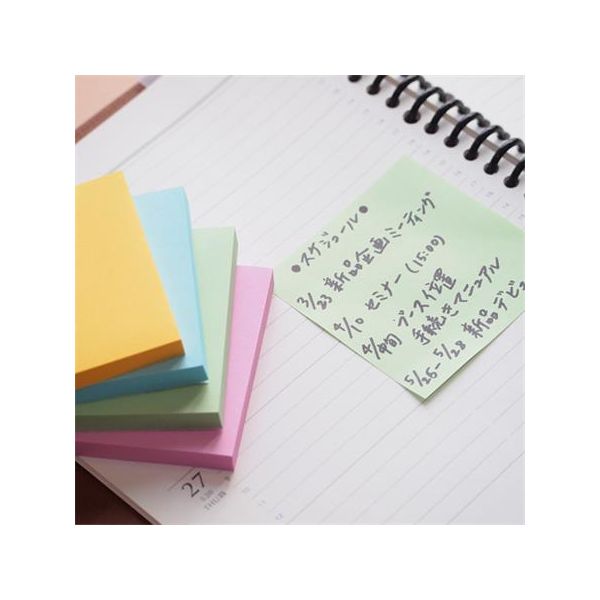 ●スケジュール●
3/23 新品企画ミーティング
4/10 セミナー(15:00)
4/中旬 ブース位置
手続きマニュアル
5/26-5/28 新品デビュ
27
THU